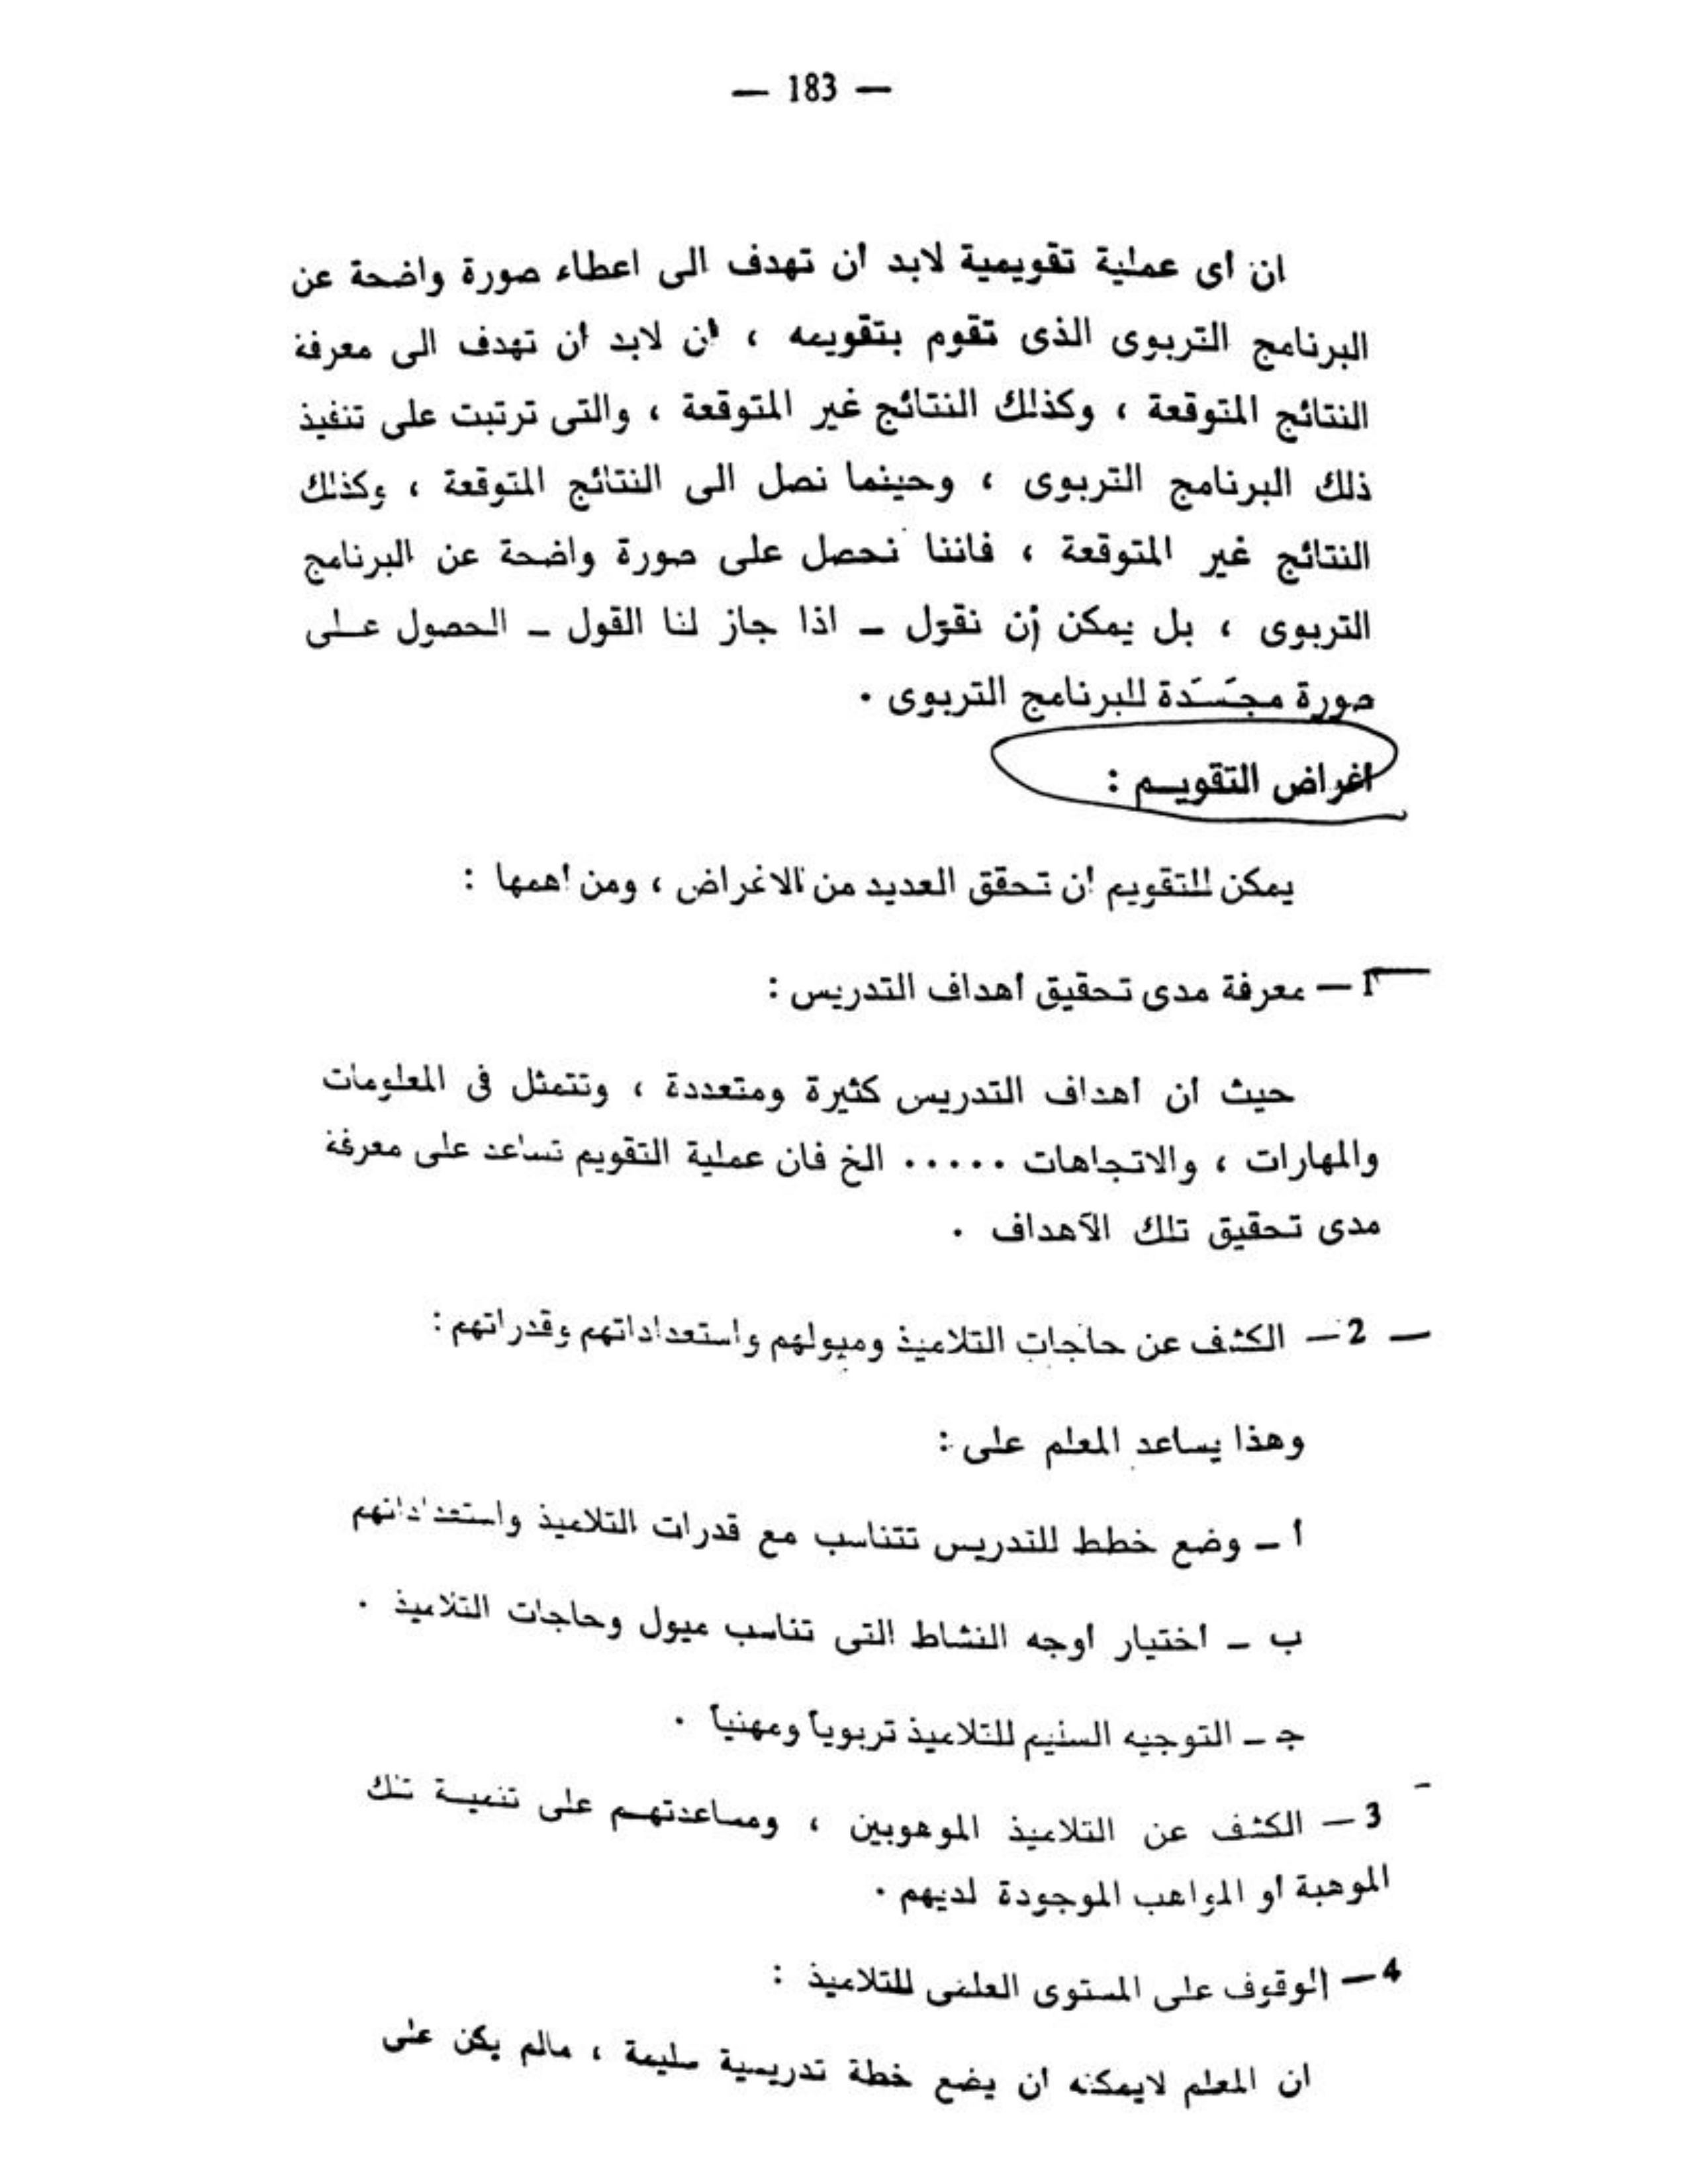 — 183 —
ان أى عملية تقويمية لابد أن تهدف الى اعطاء صورة واضحة عن
البرنامج التربوى الذى تقوم بتقويمه ، أن لابد أن تهدف الى معرفة
النتائج المتوقعة ، وكذلك النتائج غير المتوقعة ، والتى ترتبت على تنفيذ
ذلك البرنامج التربوى ، وحينما نصل الى النتائج المتوقعة ، وكذلك
النتائج غير المتوقعة ، فاننا نحصل على صورة واضحة عن البرنامج
التربوى ، بل يمكن أن نقول ــ اذا جاز لنا القول ــ الحصول عــلى
صورة مجسَّدة للبرنامج التربوى .
أغراض التقويــم :
يمكن للتقويم أن تحقق العديد من الاغراض ، ومن أهمها :
1 — معرفة مدى تحقيق أهداف التدريس :
حيث أن أهداف التدريس كثيرة ومتعددة ، وتتمثل فى المعلومات
والمهارات ، والاتجاهات ..... الخ فان عملية التقويم تساعد على معرفة
مدى تحقيق تلك الأهداف .
— 2 — الكشف عن حاجات التلاميذ وميولهم واستعداداتهم وقدراتهم :
وهذا يساعد المعلم على :
أ ــ وضع خطط للتدريس تتناسب مع قدرات التلاميذ واستعداداتهم
ب ــ اختيار أوجه النشاط التى تناسب ميول وحاجات التلاميذ .
جـ ــ التوجيه السليم للتلاميذ تربويا ومهنيا .
3 — الكشف عن التلاميذ الموهوبين ، ومساعدتهــم على تنميــة تلك
الموهبة أو المواهب الموجودة لديهم .
4 — الوقوف على المستوى العلمى للتلاميذ :
ان المعلم لايمكنه ان يضع خطة تدريسية سليمة ، مالم يكن على